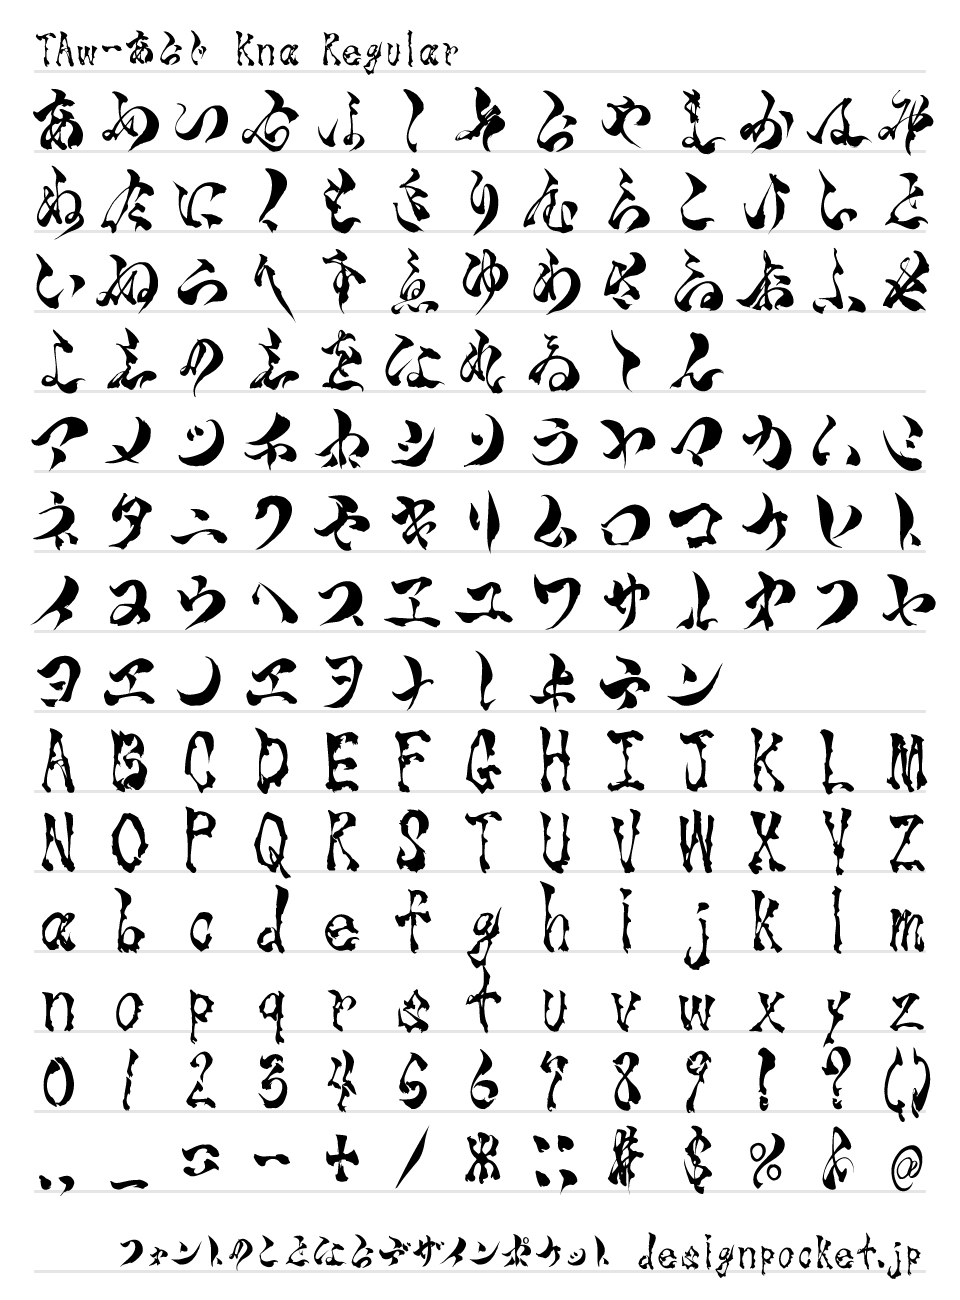 TAwーあら Kna Regular
あ め つ ち ほ し そ ら や ま か は み
ね た に く も き り む ろ こ け ひ と
い ぬ う へ す ゑ ゆ わ さ る お ふ せ
よ え の え を な れ ゐ て ん
ア メ ツ チ ホ シ ソ ラ ヤ マ カ ハ ミ
ネ タ ニ ク モ キ リ ム ロ コ ケ ヒ ト
イ ヌ ウ ヘ ス ヱ ユ ワ サ ル オ フ セ
ヨ エ ノ エ ヲ ナ レ ヰ テ ン
A B C D E F G H I J K L M
N O P Q R S T U V W X Y Z
a b c d e f g h i j k l m
n o p q r s t u v w x y z
0 1 2 3 4 5 6 7 8 9 ! ? ()
., _ = - + / * :; # $ % & @
フォントのことならデザインポケット designpocket.jp